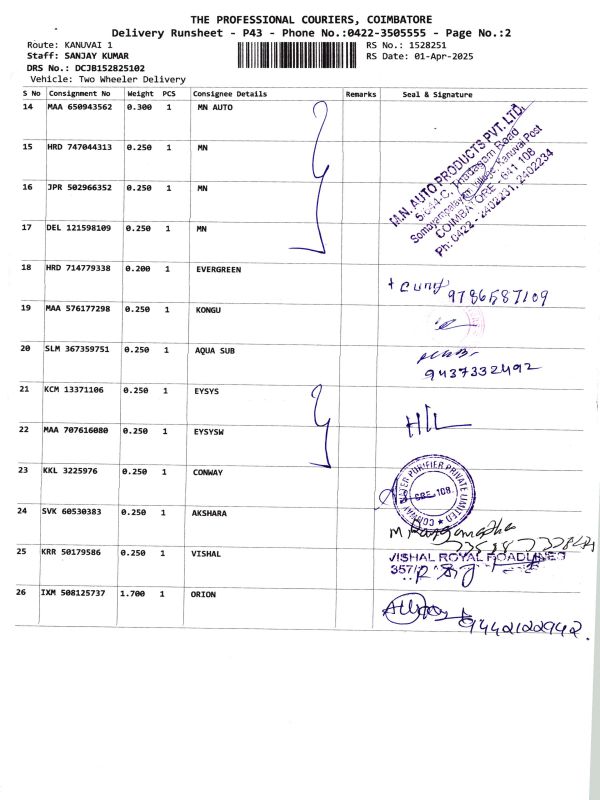 THE PROFESSIONAL COURIERS, COIMBATORE
Delivery Runsheet - P43 - Phone No.:0422-3505555 - Page No.:2
Route: KANUVAI 1
RS No.: 1528251
Staff: SANJAY KUMAR
RS Date: 01-Apr-2025
DRS No.: DCJB152825102
Vehicle: Two Wheeler Delivery
S No Consignment No Weight PCS Consignee Details Remarks Seal & Signature
14 MAA 650943562 0.300 1 MN AUTO
15 HRD 747044313 0.250 1 MN
16 JPR 502966352 0.250 1 MN
17 DEL 121598109 0.250 1 MN
M.N. AUTO PRODUCTS PVT. LTD.
5/644-C, Thudiyalur Road
Somayampalayam Village, Kanuvai Post
COIMBATORE - 641 108
Ph: 0422 - 2402231, 2402234
18 HRD 714779338 0.200 1 EVERGREEN
9786587109
19 MAA 576177298 0.250 1 KONGU
20 SLM 367359751 0.250 1 AQUA SUB
9437332492
21 KCM 13371106 0.250 1 EYSYS
22 MAA 707616080 0.250 1 EYSYSW
23 KKL 3225976 0.250 1 CONWAY
CONWAY WATER PURIFIER PRIVATE LIMITED
CBE-108
24 SVK 60530383 0.250 1 AKSHARA
25 KRR 50179586 0.250 1 VISHAL
VISHAL ROYAL ROADLINES
26 IXM 508125737 1.700 1 ORION
9442122942.